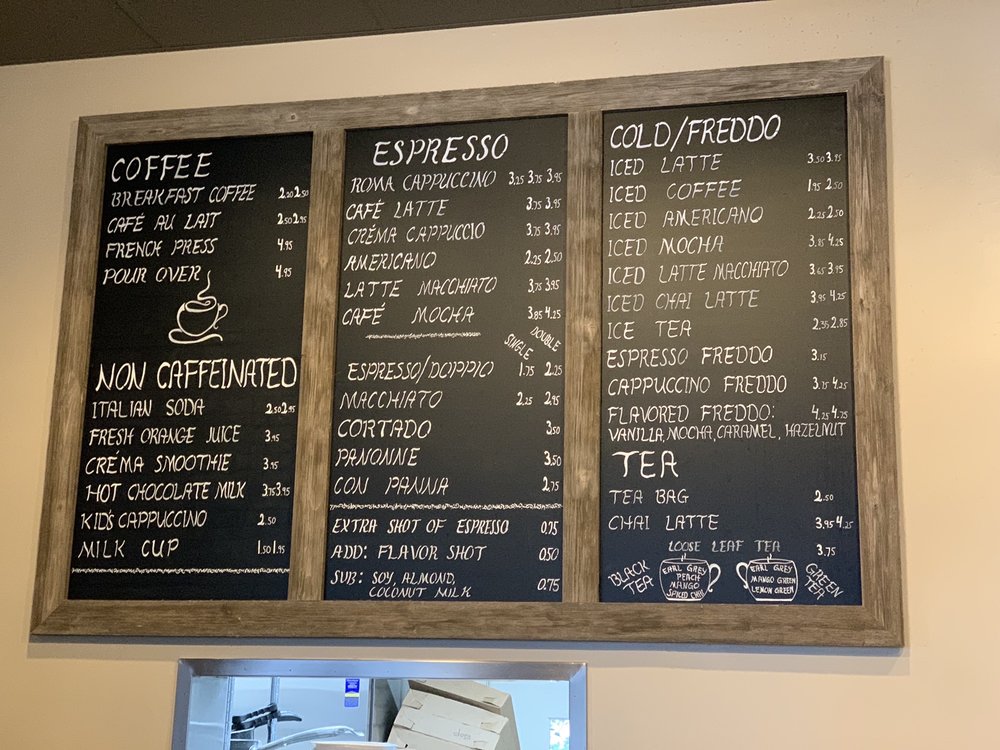 COFFEE
BREAKFAST COFFEE 2.20 2.50
CAFÉ AU LAIT 2.50 2.95
FRENCH PRESS 4.95
POUR OVER 4.95
NON CAFFEINATED
ITALIAN SODA 2.50 2.95
FRESH ORANGE JUICE 3.95
CRÉMA SMOOTHIE 3.95
HOT CHOCOLATE MILK 3.75 3.95
KID'S CAPPUCCINO 2.50
MILK CUP 1.50 1.95
ESPRESSO
ROMA CAPPUCCINO 3.25 3.75 3.95
CAFÉ LATTE 3.75 3.95
CRÉMA CAPPUCCIO 3.75 3.95
AMERICANO 2.25 2.50
LATTE MACCHIATO 3.75 3.95
CAFÉ MOCHA 3.85 4.25
SINGLE DOUBLE
ESPRESSO/DOPPIO 1.75 2.25
MACCHIATO 2.25 2.95
CORTADO 3.50
PANONNE 3.50
CON PANNA 2.75
EXTRA SHOT OF ESPRESSO 0.75
ADD: FLAVOR SHOT 0.50
SUB: SOY, ALMOND,
COCONUT MILK 0.75
COLD/FREDDO
ICED LATTE 3.50 3.95
ICED COFFEE 1.95 2.50
ICED AMERICANO 2.25 2.50
ICED MOCHA 3.85 4.25
ICED LATTE MACCHIATO 3.65 3.95
ICED CHAI LATTE 3.95 4.25
ICE TEA 2.35 2.85
ESPRESSO FREDDO 3.15
CAPPUCCINO FREDDO 3.75 4.25
FLAVORED FREDDO: 4.25 4.75
VANILLA, MOCHA, CARAMEL, HAZELNUT
TEA
TEA BAG 2.50
CHAI LATTE 3.95 4.25
LOOSE LEAF TEA 3.75
BLACK
TEA
EARL GREY
PEACH
MANGO
SPICED CHAI
EARL GREY
MANGO GREEN
LEMON GREEN
GREEN
TEA